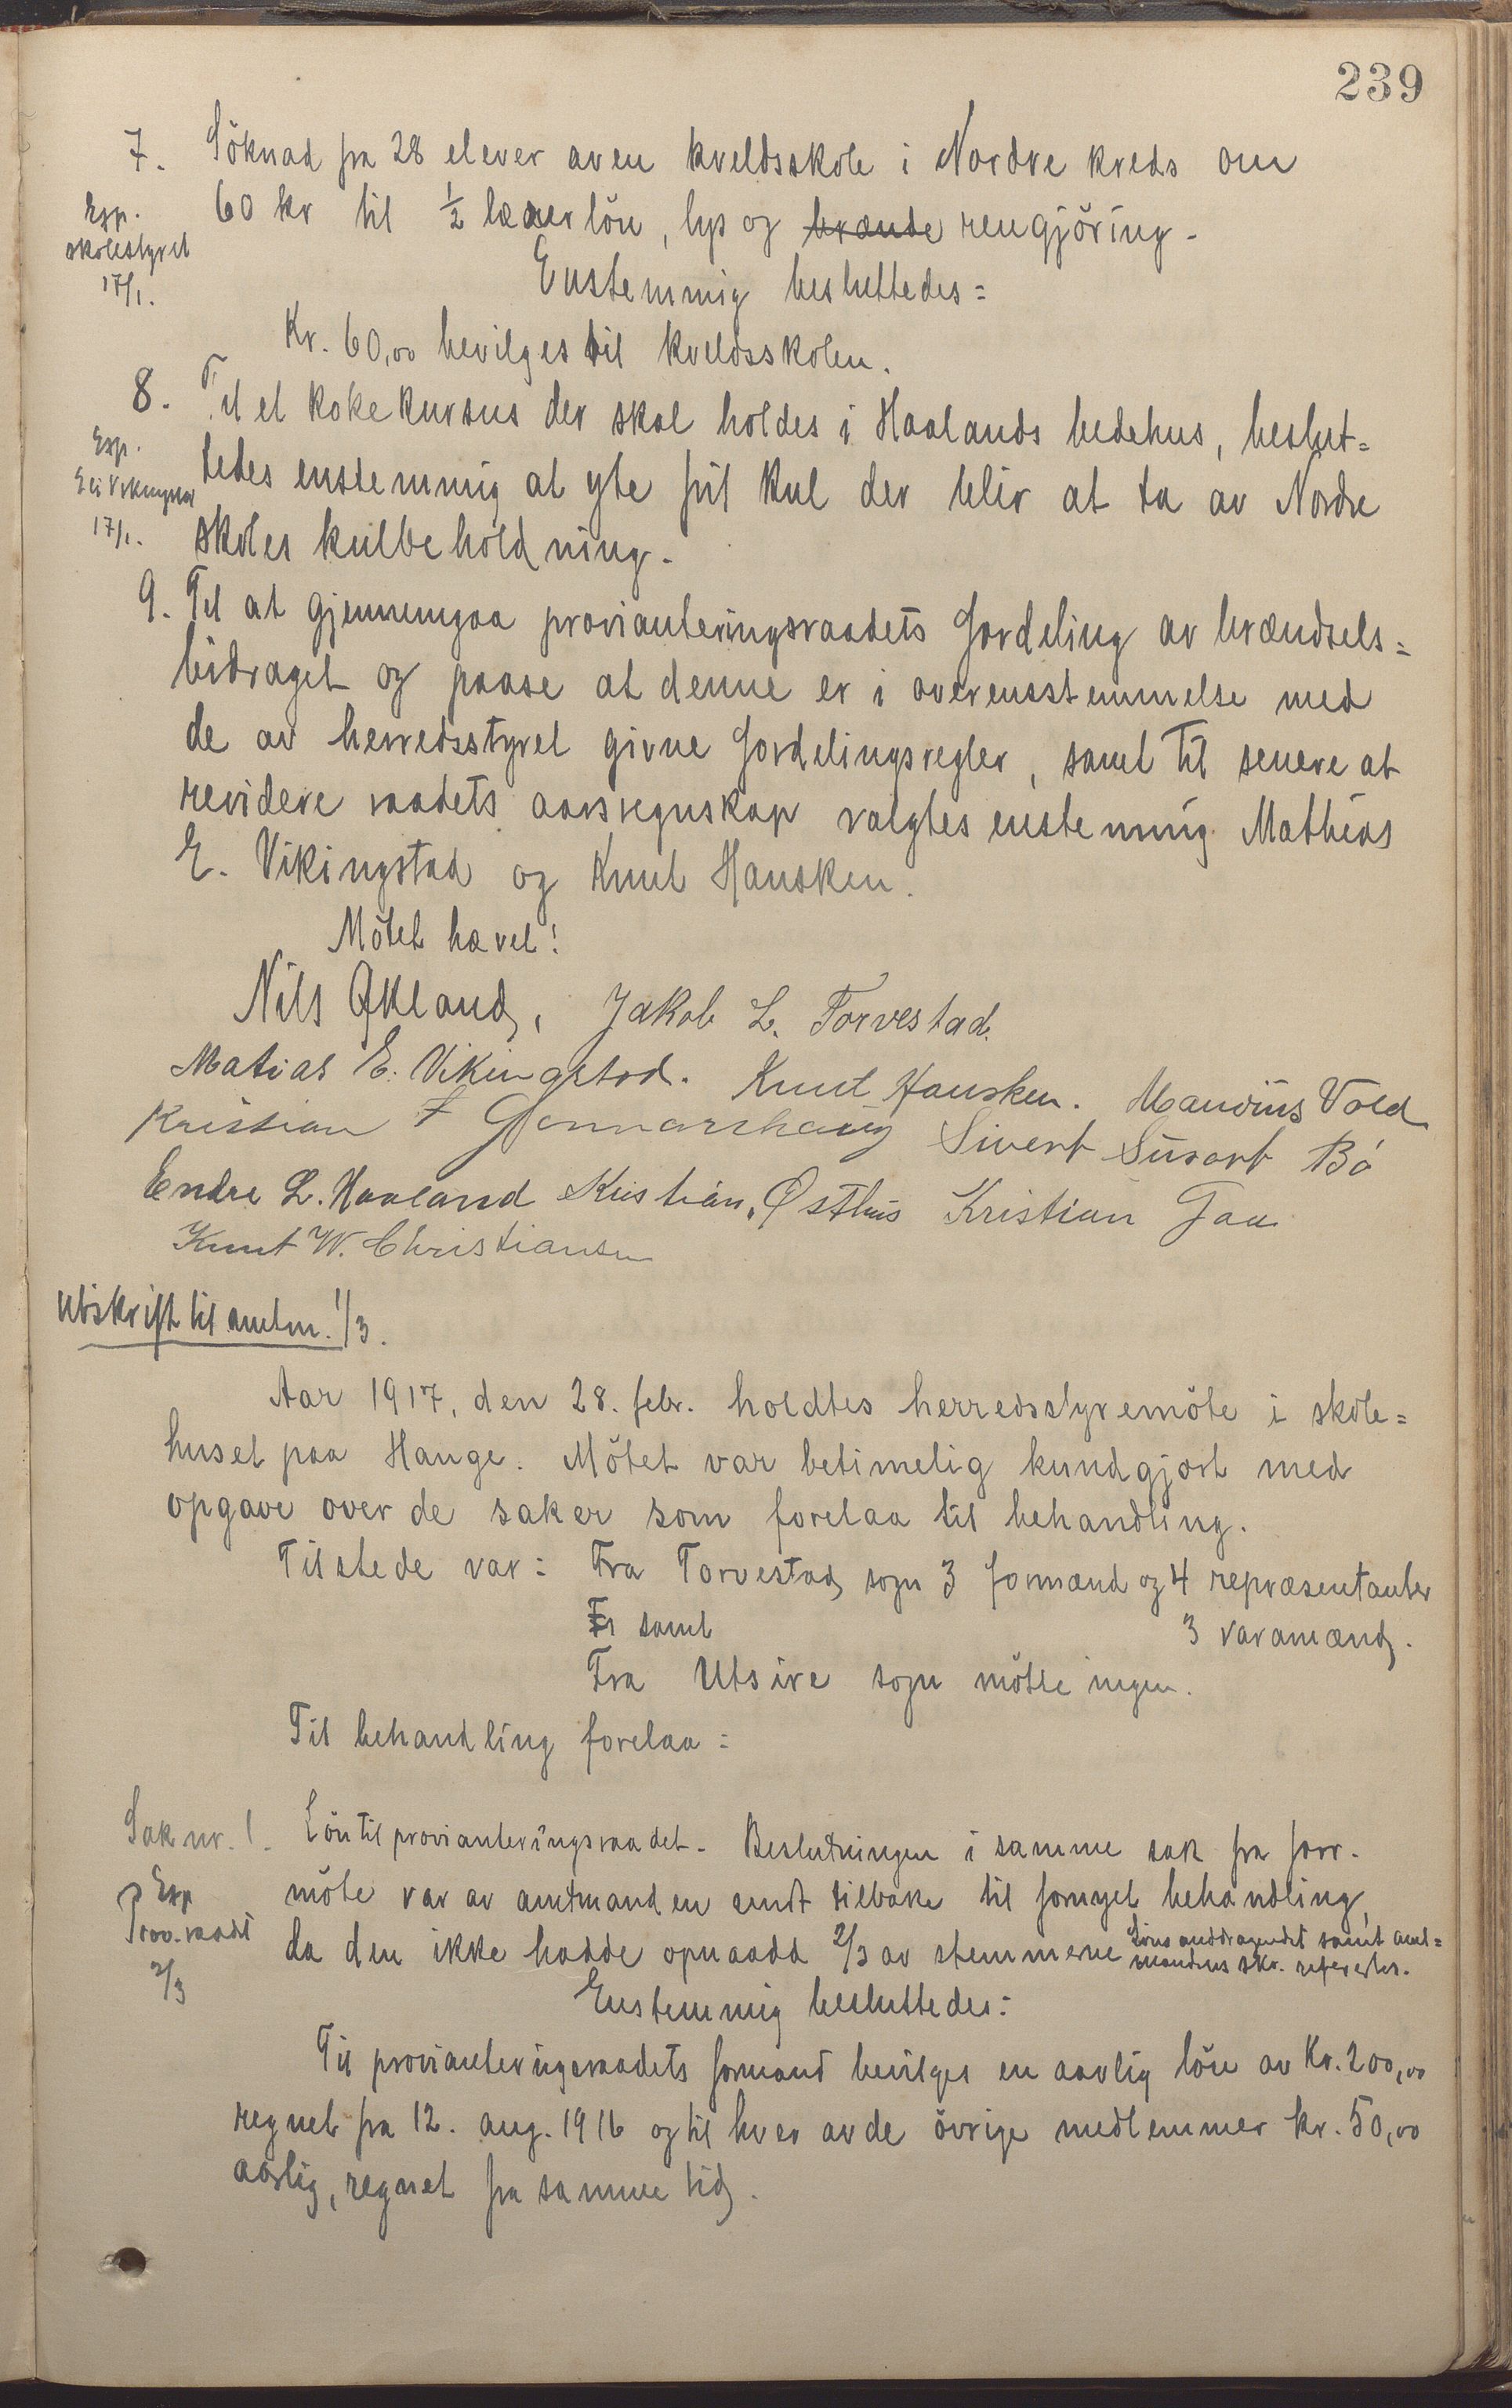 239
7. Söknad fra 28 elever av en kveldsskole i Nordre kreds om
Exp. skolestyret 17/1.
60 kr til ½ lærerlön, lys og brænde rengjöring.
Enstemmig besluttedes:
Kr. 60,00 bevilges til kveldsskolen.
8. Til et kokekursus der skal holdes i Haalands bedehus, beslut=
Exp. 17/1.
tedes enstemmig at yte frit kul der blir at ta av Nordre
skoles kulbeholdning.
9. Til at gjennemgaa provianteringsraadets fordeling av brændsels=
bidraget og paase at denne er i overensstemmelse med
de av herredsstyret givne fordelingsregler, samt til senere at
revidere raadets aarsregnskap valgtes enstemmig Mathias
E. Vikingstad og Knut Hausken.
Mötet hævet!
Nils Økland, Jakob L. Torvestad.
Matias E. Vikingstad. Knut Hausken. Mauritius Vold
Kristian F Gunnarshaug Sivert Sivart Bö
Endre L. Haaland Kristian Østhus Kristian Gau
Knut W. Christiansen
Utskrift til amtm. 1/3.
Aar 1917, den 28. febr. holdtes herredsstyremöte i skole=
huset paa Hauge. Mötet var betimelig kundgjort med
opgave over de saker som forelaa til behandling.
Tilstede var: Fra Torvestad sogn 3 formænd og 4 repræsentanter
samt 3 varamænd.
Fra Utsire sogn mötte ingen.
Til behandling forelaa:
Sak nr. 1. Lön til provianteringsraadet. Beslutningen i samme sak fra forr.
Exp Prov.raadet 2/3
möte var av amtmanden sendt tilbake til fornyet behandling,
da den ikke hadde opnaadd 2/3 av stemmerne samt amt=
mandens skr. refertes.
Enstemmig besluttedes:
Til provianteringsraadets formand bevilges en aarlig lön av Kr. 200,00
regnet fra 12. aug. 1916 og til hver av de övrige medlemmer kr. 50,00
aarlig, regnet fra samme tid.